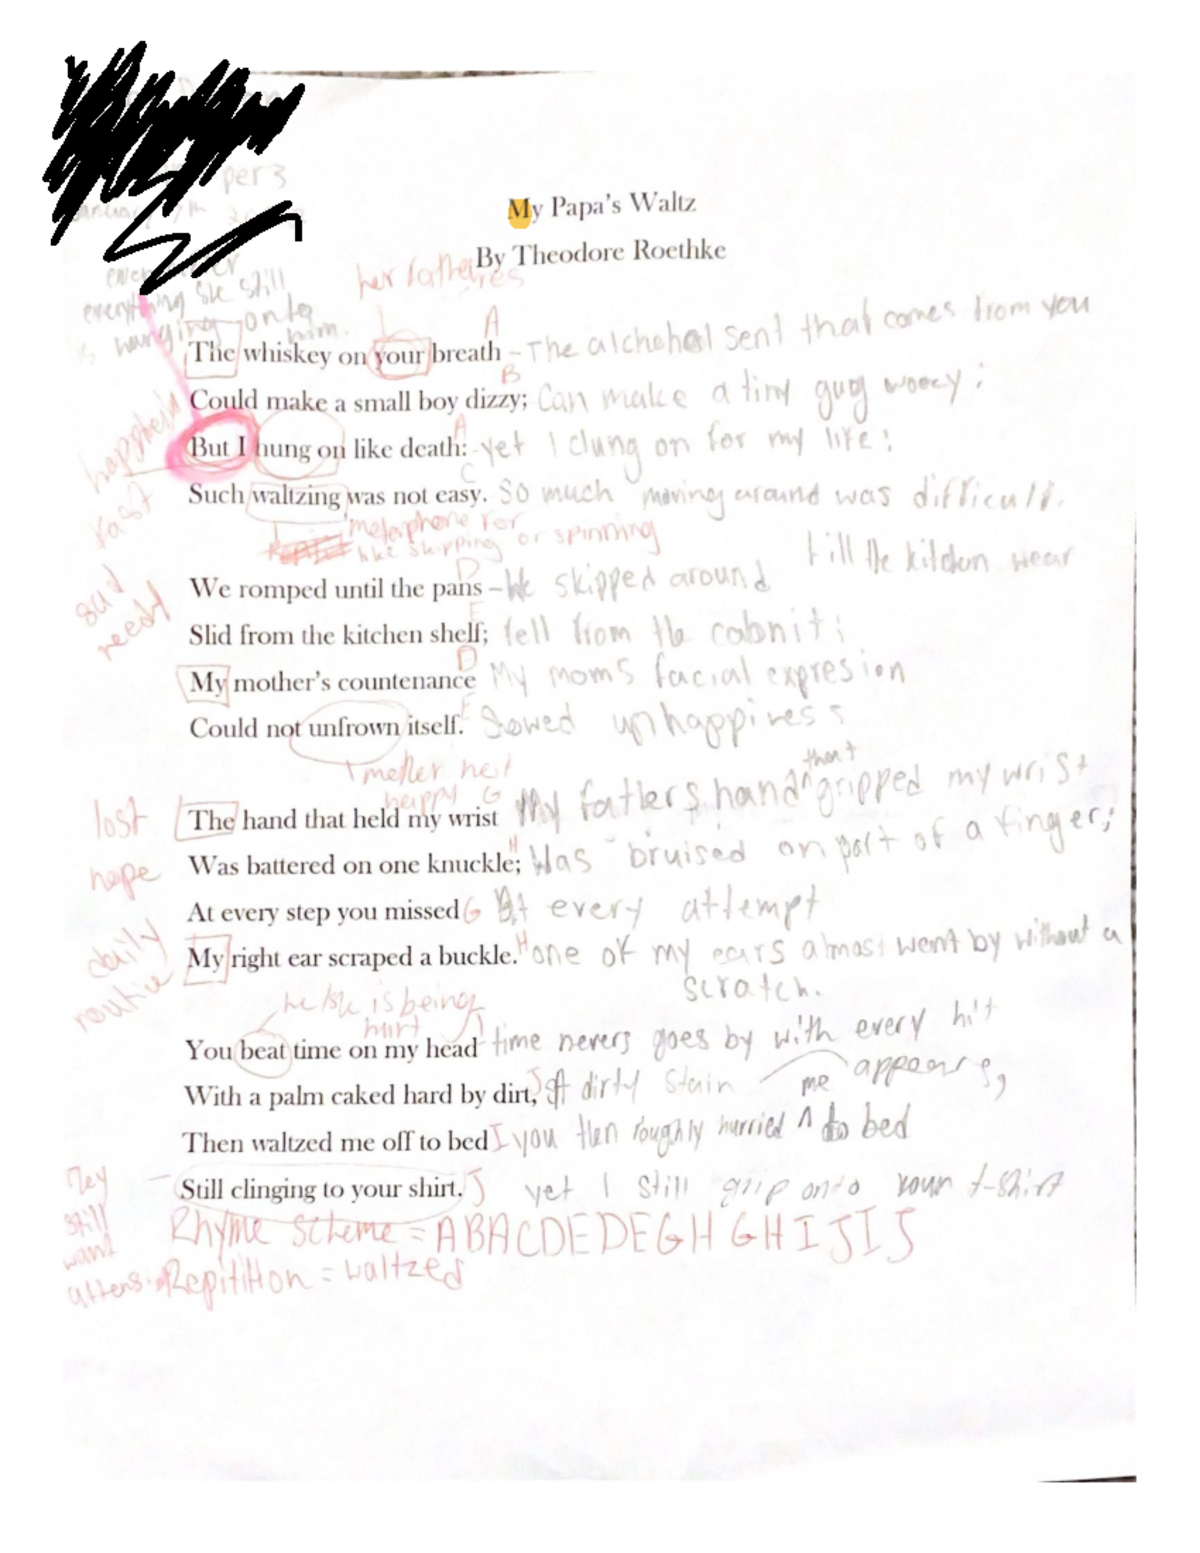 per 3
My Papa's Waltz
By Theodore Roethke
her fatheres
everything she still
is hanging onto
him.
A
The whiskey on your breath - The alchehol sent that comes from you
B
Could make a small boy dizzy; Can make a tiny guy woozy;
A
But I hung on like death: - yet I clung on for my life:
C
Such waltzing was not easy. So much moving around was difficult.
metaphore for
like skipping or spinning
till the kitchen wear
D
We romped until the pans - We skipped around
E
Slid from the kitchen shelf; fell from the cabnit;
D
My mother's countenance My moms facial expresion
E
Could not unfrown itself. Sowed unhappiness
mother not
happy
that
G
The hand that held my wrist My fathers hand ^ gripped my wrist
H
Was battered on one knuckle; Was bruised on part of a finger;
At every step you missed G At every attempt
My right ear scraped a buckle. H one of my ears almost went by without a
scratch.
he/she is being
hurt
I
You beat time on my head time nevers goes by with every hit
With a palm caked hard by dirt, J A dirty stain appears,
me
Then waltzed me off to bed I you then roughly hurried ^ to bed
Still clinging to your shirt. J yet I still grip onto your t-shirt
Rhyme scheme = ABACDEDEGHGHIJIJ
Repitition = waltzed
sad
need
lost
hope
daily
routine
They
still
want